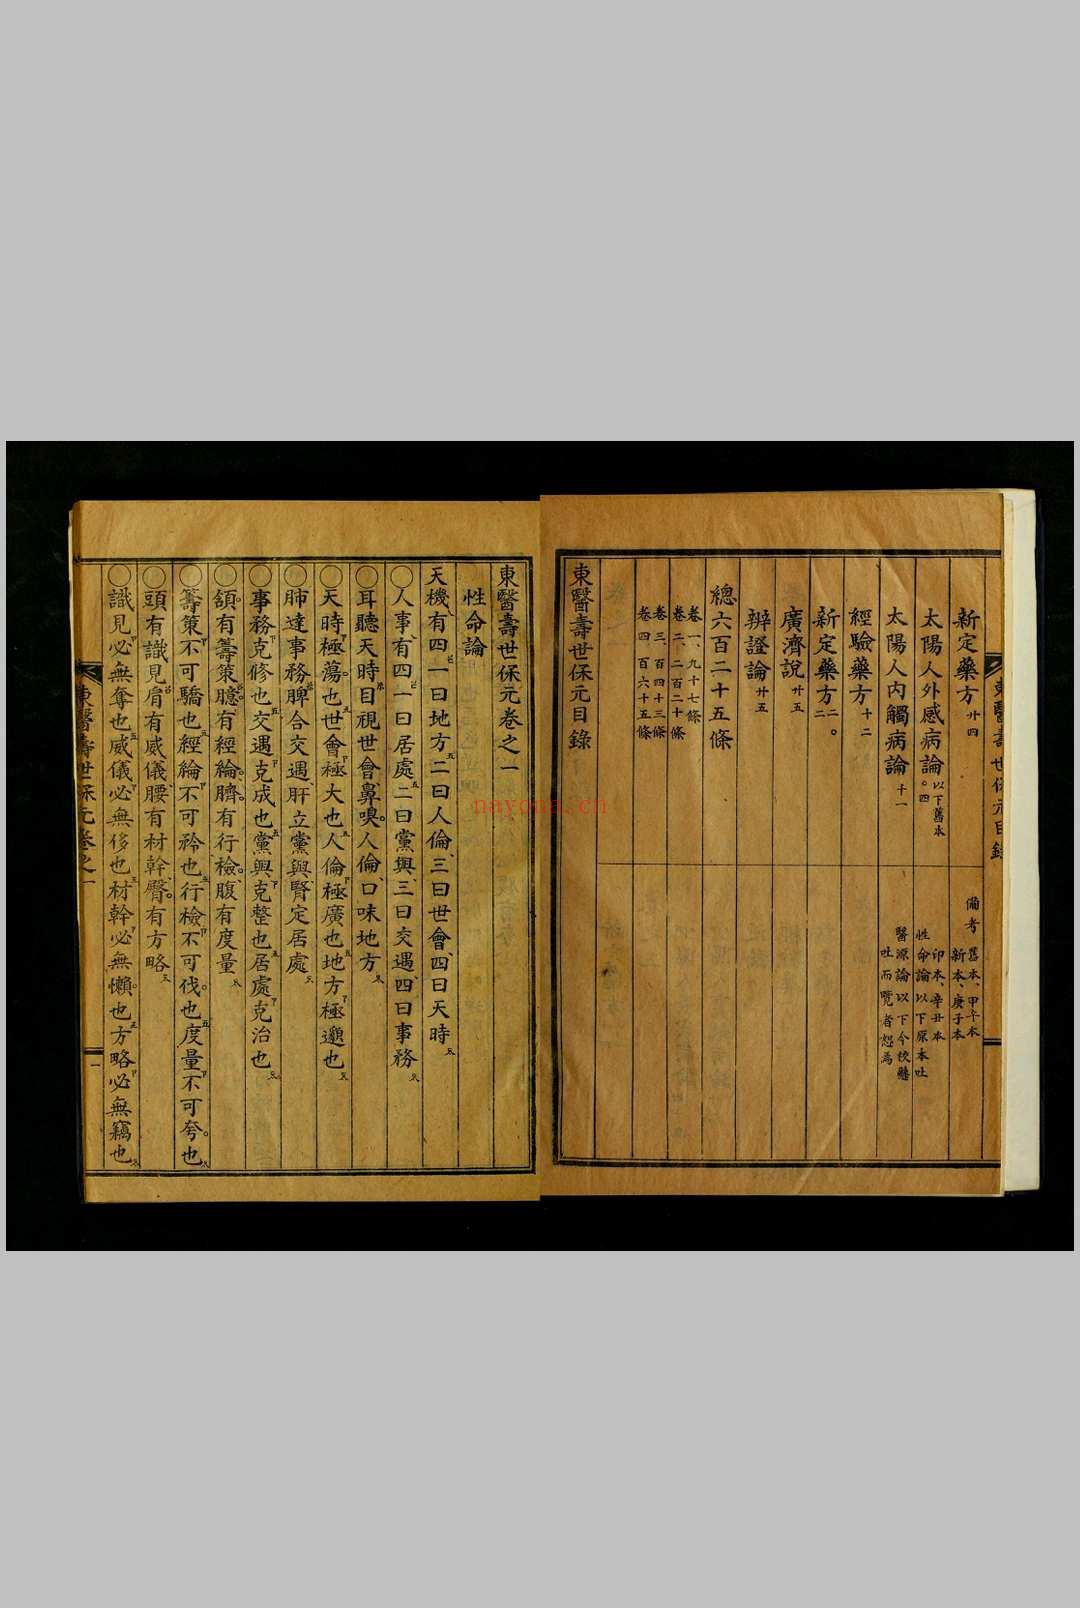 新定藥方 廿四
太陽人外感病論 以下舊本 四
太陽人內觸病論 十一
經驗藥方 十二
新定藥方 二
廣濟說 廿五
辨證論 廿五
總六百二十五條
卷一、九十七條
卷二、二百二十條
卷三、百四十三條
卷四 百六十五條
東醫壽世保元目錄
備考 舊本、甲午本
新本、庚子本
印本、辛丑本
性命論以下原本吐
醫源論以下今校懸
吐而覽者恕焉
東醫壽世保元目錄
東醫壽世保元卷之一
性命論
天機有四一曰地方二曰人倫三曰世會四曰天時
○人事有四一曰居處二曰黨與三曰交遇四曰事務
○耳聽天時目視世會鼻嗅人倫口味地方
○天時極蕩也世會極大也人倫極廣也地方極邈也
○肺達事務脾合交遇肝立黨與腎定居處
○事務克修也交遇克成也黨與克整也居處克治也
○頷有籌策臆有經綸臍有行檢腹有度量
○籌策不可驕也經綸不可矜也行檢不可伐也度量不可夸也
○頭有識見肩有威儀腰有材幹臀有方略
○識見必無奪也威儀必無侈也材幹必無懶也方略必無竊也
東醫壽世保元卷之一
一
nayona.cn